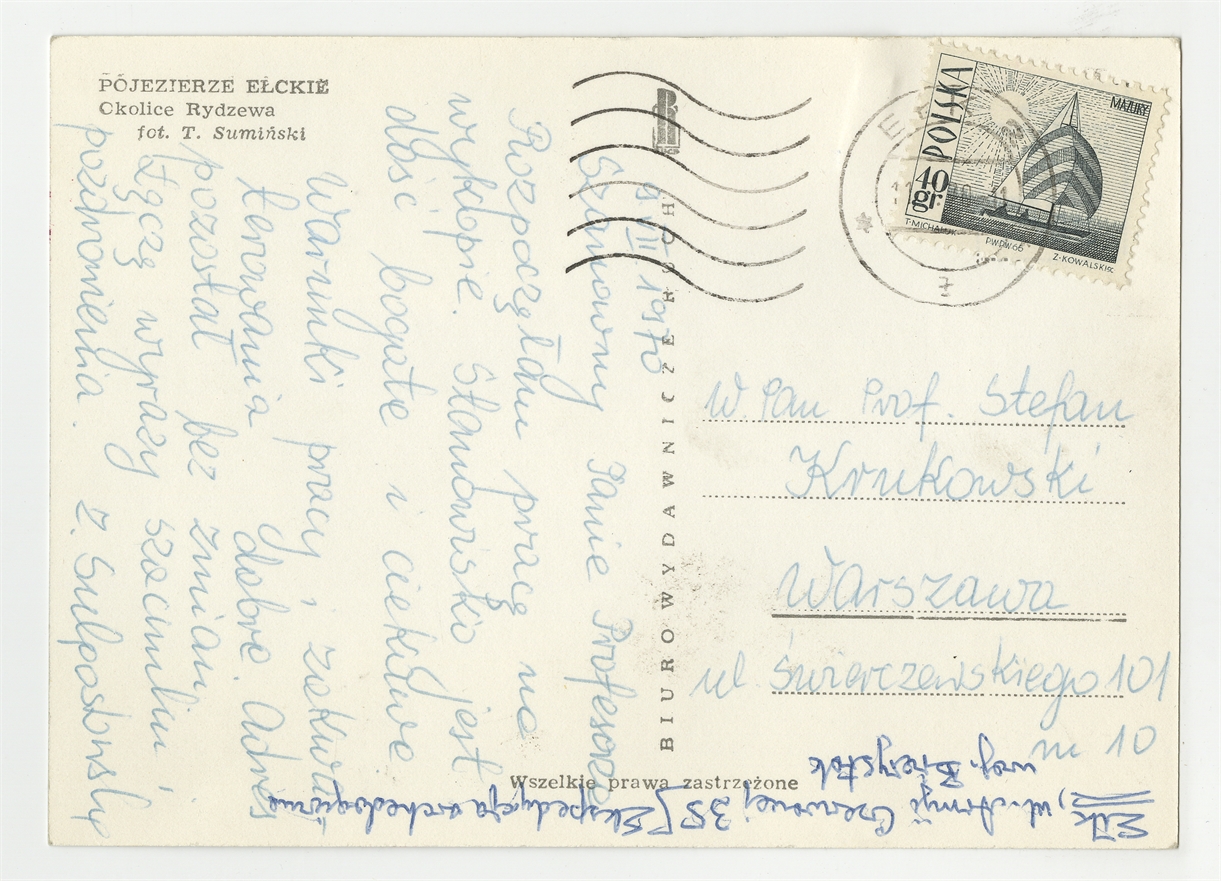 POJEZIERZE EŁCKIE
Okolice Rydzewa
fot. T. Sumiński
9 VII 1970
Szanowny Panie Profesorze
Rozpoczęłam pracę na
wykopie. Stanowisko jest
dość bogate i ciekawe
Warunki pracy i zakwa
terowania dobre. Adres
pozostał bez zmian.
Łączę wyrazy szacunku i
pozdrowienia. Z. Sulgostowska
BIURO WYDAWNICZE RUCH
POLSKA
MAZURY
40 gr
T. MICHALUK
PWPW 66
Z. KOWALSKI sc.
W. Pan Prof. Stefan
Krukowski
Warszawa
ul Świerczewskiego 101
m 10
Wszelkie prawa zastrzeżone
Ełk, ul. Armii Czerwonej 35 / Ekspedycja archeologiczna
woj. Białystok